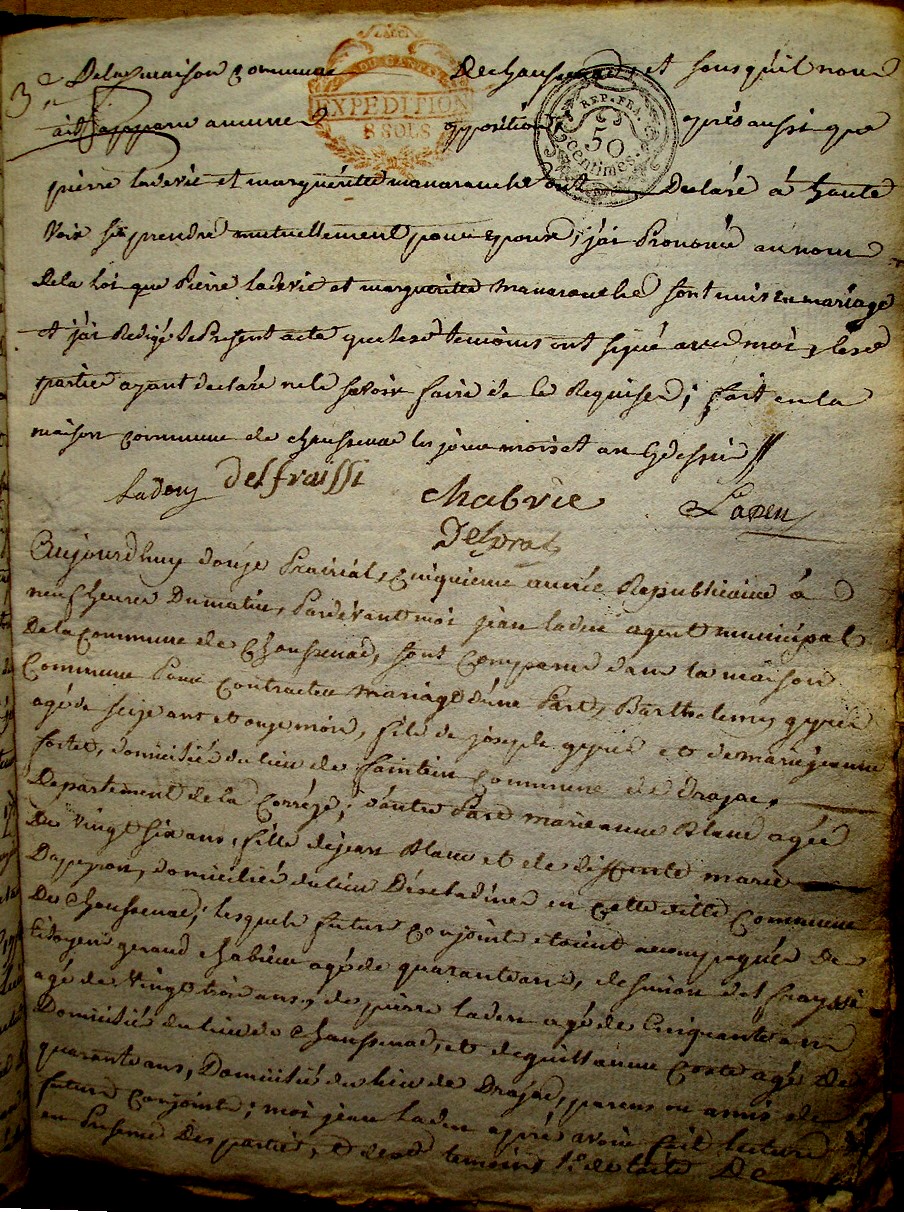 3e
De la maison commune de chaussenac, et sans qu'il nous
ait apparu aucune opposition, après aussi que
EXPEDITION
8 SOLS
REP. FRA.
50
centimes.
pierre ladevie et marguéritte manaranche ont déclaré à haute
voix se prendre mutuellement pour epoux, j'ai Prononcé au nom
De la Loi que Pierre ladevie et margueritte manaranche sont unis en mariage
et j'ai Redigé le Présent acte que les temoins ont signé avec moi, les
partie ayant declaré ne le savoir faire de ce Requises; fait en la
maison commune de chaussenac les jour mois et an
Delfraissi
Chabrie
Laden
Delprat
Aujourdhuy douze Prairial, cinquieme année Republicaine à
neuf heures Dumatin, Pardevant moi jean laden agent municipal
De la Commune de Chaussenac, sont comparus dans la maison
Commune Pour contracter mariage d'une Part, Barthelemy
agé de seize ans et onze mois, fils de joseph et de marie jeanne
domicilié du lieu de commune de
Departement de la Corrèze; d'autre Part marie anne Blanc agée
De vingt six ans, fille de jean Blanc et de deffunte marie
domiciliée du lieu en cette ditte Commune
De Chaussenac; lesquels futurs conjoints étoient accompagnés de
Citoyen geraud Chabrie agé de quarante ans, de simon delfrayssi
agé de Vingt trois ans, de pierre laden agé de Cinquante ans
Domicilié du lieu de Chaussenac, et de guillaume Coste agé de
quarante ans, Domicilié du lieu de parens ou amis des
futurs conjoints; moi jean Laden après avoir fait lecture
en Présence Des parties, et des temoins 1° de l'acte De